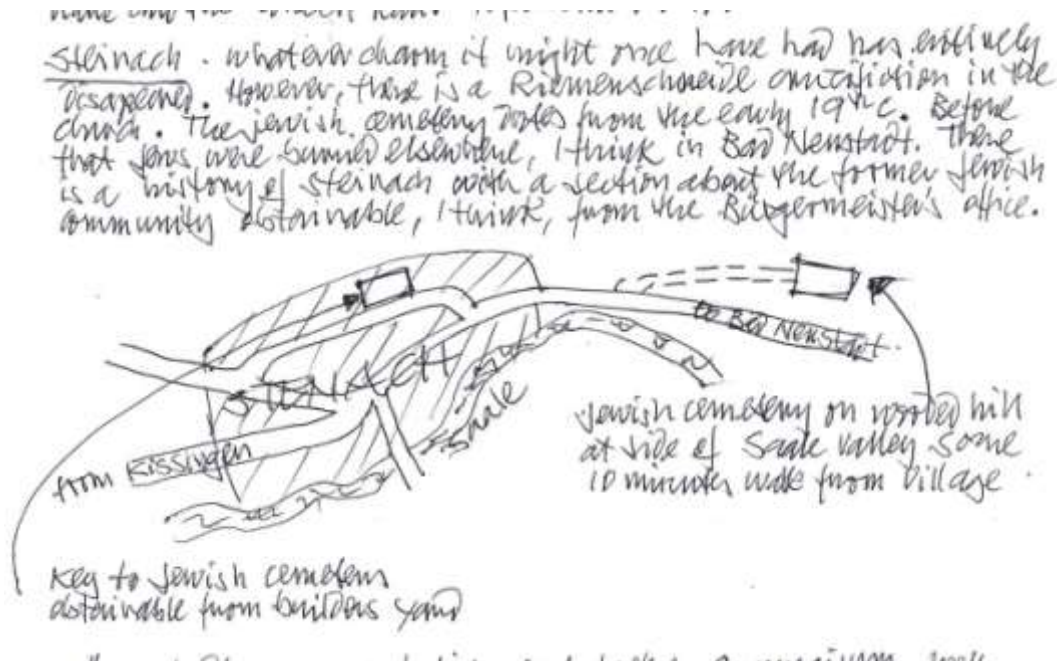 Steinach. whatever charm it might once have had has entirely
disapeared. However, there is a Riemenschneide crucifiction in the
church. The jewish cemetery dates from the early 19th c. Before
that Jews were burried elsewhere, I think in Bad Neustadt. There
is a history of Steinach with a section about the former Jewish
community obtainable, I think, from the Bürgermeister's office.
to Bad Neustadt.
STEINACH
Saale
from Kissingen
Jewish cemetery on wooded hill
at side of Saale valley some
10 minutes walk from village.
Key to Jewish cemetery
obtainable from builders yard